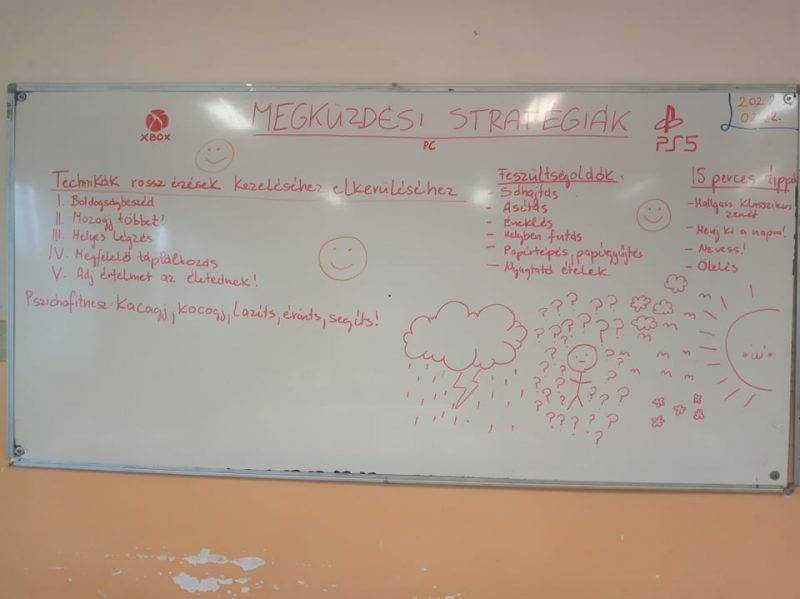 MEGKÜZDÉSI STRATÉGIÁK
XBOX
PC
PS5
Technikák rossz érzések kezeléséhez elkerüléséhez
I. Boldogságbeszéd
II. Mozogj többet!
III. Helyes légzés
IV. Megfelelő táplálkozás
V. Adj értelmet az életednek!
Pszichofitnesz: Kacagj, kocogj, lazíts, érints, segíts!
Feszültségoldók:
- Sóhajtás
- Ásítás
- Éneklés
- Helyben futás
- Papírtépés, papírgyűjtés
- Nyugtató ételek
15 perces tippek
- Hallgass klasszikus zenét
- Menj ki a napra!
- Nevess!
- Ölelés
? ? ? ? ? ? ? ? ? ?